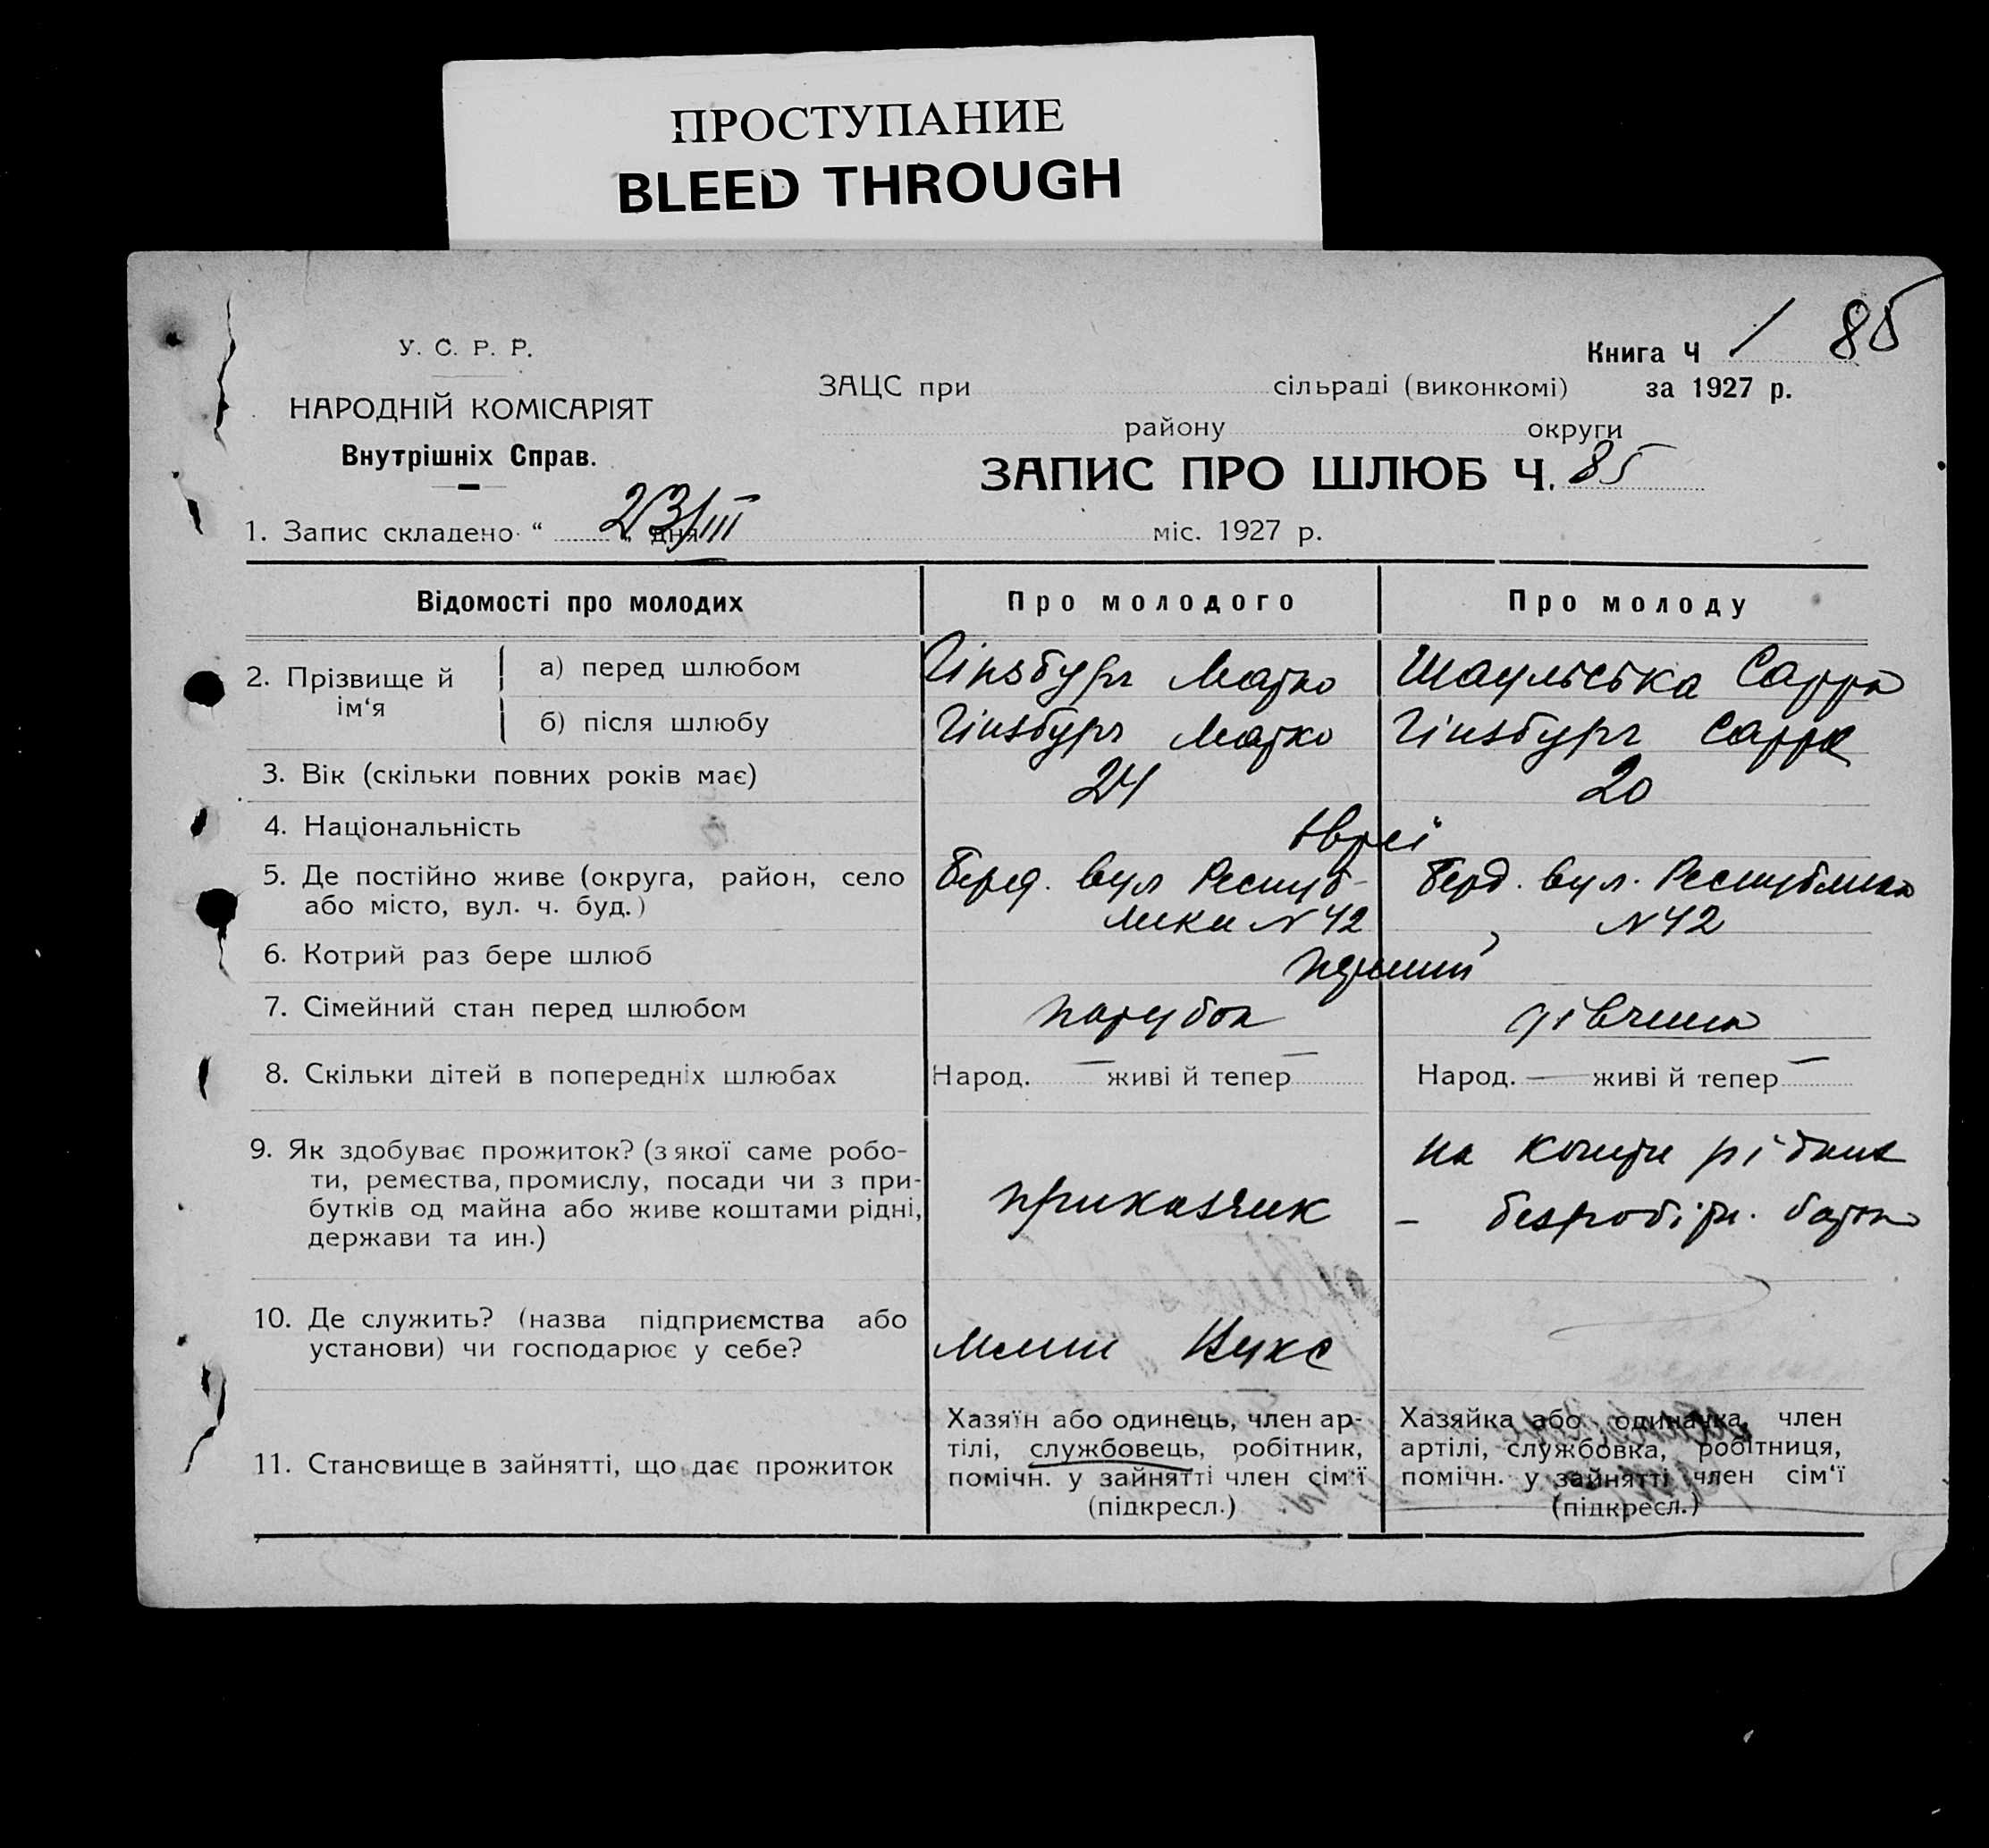 ПРОСТУПАНИЕ
BLEED THROUGH
У. С. Р. Р.
НАРОДНІЙ КОМІСАРІЯТ
Внутрішніх Справ.
Книга Ч 1 85
ЗАЦС при сільраді (виконкомі) за 1927 р.
району округи
ЗАПИС ПРО ШЛЮБ Ч. 85
1. Запис складено „ “ дня 23/III міс. 1927 р.
Відомості про молодих Про молодого Про молоду
2. Прізвище й ім‘я
а) перед шлюбом Гінзбург Матко Шаульська Сарра
б) після шлюбу Гінзбург Матко Гінзбург Сарра
3. Вік (скільки повних років має) 24 20
4. Національність євреї
5. Де постійно живе (округа, район, село Берд. вул Респуб- Берд. вул. Республики
або місто, вул. ч. буд.) лики N 42 N 42
6. Котрий раз бере шлюб перший
7. Сімейний стан перед шлюбом парубок дівчина
8. Скільки дітей в попередніх шлюбах Народ. — живі й тепер — Народ. — живі й тепер —
9. Як здобуває прожиток? (з якої саме робо-
ти, ремества, промислу, посади чи з при-
бутків од майна або живе коштами рідні,
держави та ин.)
приказчик
на кошти рідних
– безробітн. батько
10. Де служить? (назва підприємства або
установи) чи господарює у себе?
11. Становище в зайнятті, що дає прожиток
Хазяїн або одинець, член ар-
тілі, службовець, робітник,
помічн. у зайнятті член сім‘ї
(підкресл.)
Хазяйка або одиначка, член
артілі, службовка, робітниця,
помічн. у зайнятті член сім‘ї
(підкресл.)